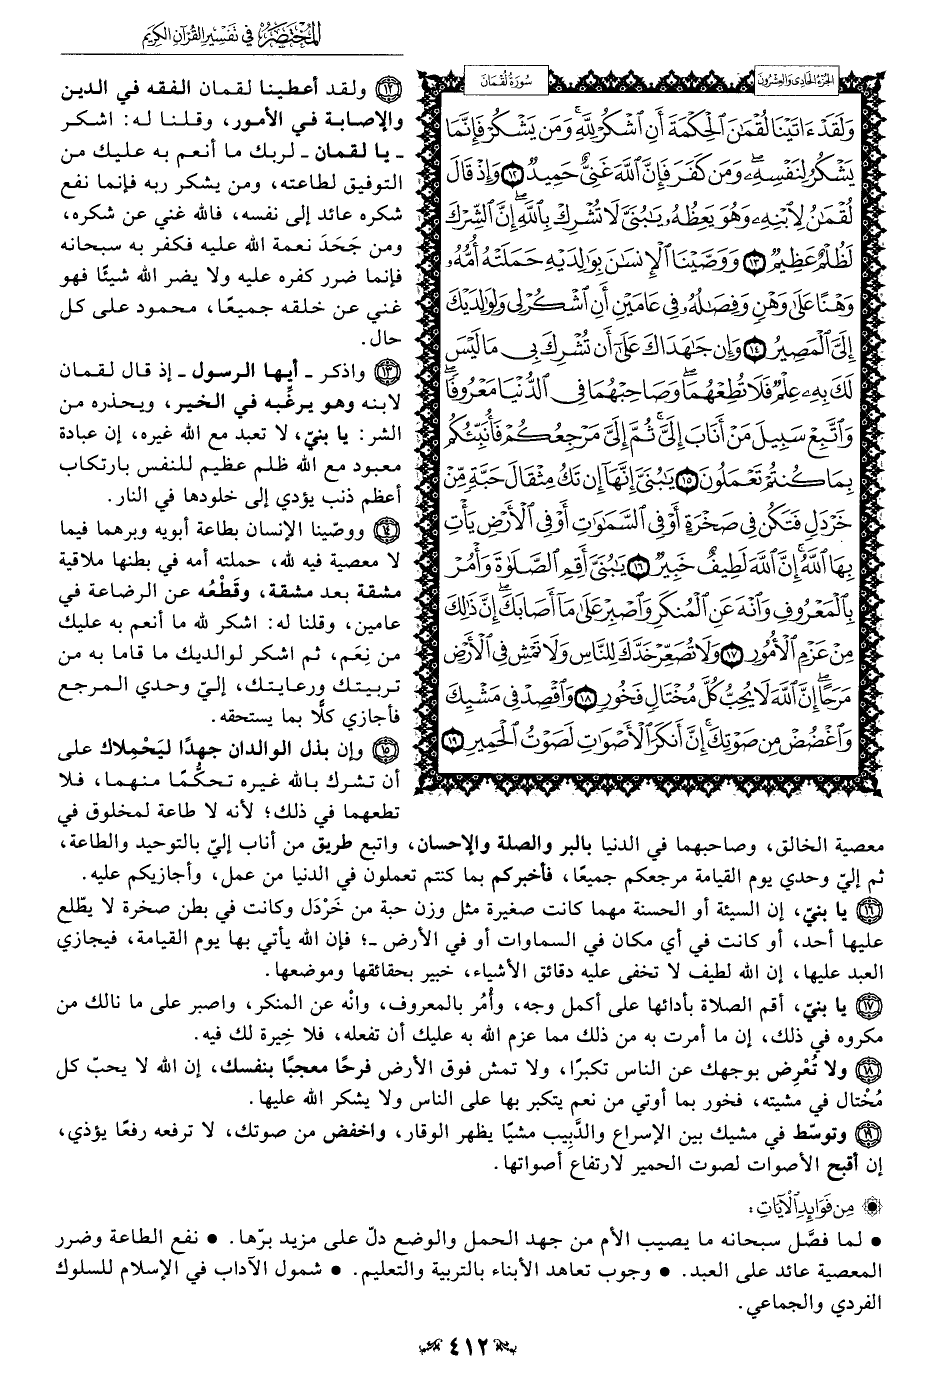 المختصر في تفسير القرآن الكريم
الجزء الحادي والعشرون
سورة لقمان
وَلَقَدْ ءَاتَيْنَا لُقْمَٰنَ الْحِكْمَةَ أَنِ اشْكُرْ لِلَّهِ ۚ وَمَن يَشْكُرْ فَإِنَّمَا
يَشْكُرُ لِنَفْسِهِۦ ۖ وَمَن كَفَرَ فَإِنَّ اللَّهَ غَنِيٌّ حَمِيدٌ ١٢ وَإِذْ قَالَ
لُقْمَٰنُ لِابْنِهِۦ وَهُوَ يَعِظُهُۥ يَٰبُنَيَّ لَا تُشْرِكْ بِاللَّهِ ۖ إِنَّ الشِّرْكَ
لَظُلْمٌ عَظِيمٌ ١٣ وَوَصَّيْنَا الْإِنسَٰنَ بِوَٰلِدَيْهِ حَمَلَتْهُ أُمُّهُۥ
وَهْنًا عَلَىٰ وَهْنٍ وَفِصَٰلُهُۥ فِي عَامَيْنِ أَنِ اشْكُرْ لِي وَلِوَٰلِدَيْكَ
إِلَيَّ الْمَصِيرُ ١٤ وَإِن جَٰهَدَاكَ عَلَىٰٓ أَن تُشْرِكَ بِي مَا لَيْسَ
لَكَ بِهِۦ عِلْمٌ فَلَا تُطِعْهُمَا ۖ وَصَاحِبْهُمَا فِي الدُّنْيَا مَعْرُوفًا ۖ
وَاتَّبِعْ سَبِيلَ مَنْ أَنَابَ إِلَيَّ ۚ ثُمَّ إِلَيَّ مَرْجِعُكُمْ فَأُنَبِّئُكُم
بِمَا كُنتُمْ تَعْمَلُونَ ١٥ يَٰبُنَيَّ إِنَّهَآ إِن تَكُ مِثْقَالَ حَبَّةٍ مِّنْ
خَرْدَلٍ فَتَكُن فِي صَخْرَةٍ أَوْ فِي السَّمَٰوَٰتِ أَوْ فِي الْأَرْضِ يَأْتِ
بِهَا اللَّهُ ۚ إِنَّ اللَّهَ لَطِيفٌ خَبِيرٌ ١٦ يَٰبُنَيَّ أَقِمِ الصَّلَوٰةَ وَأْمُرْ
بِالْمَعْرُوفِ وَانْهَ عَنِ الْمُنكَرِ وَاصْبِرْ عَلَىٰ مَآ أَصَابَكَ ۖ إِنَّ ذَٰلِكَ
مِنْ عَزْمِ الْأُمُورِ ١٧ وَلَا تُصَعِّرْ خَدَّكَ لِلنَّاسِ وَلَا تَمْشِ فِي الْأَرْضِ
مَرَحًا ۖ إِنَّ اللَّهَ لَا يُحِبُّ كُلَّ مُخْتَالٍ فَخُورٍ ١٨ وَاقْصِدْ فِي مَشْيِكَ
وَاغْضُضْ مِن صَوْتِكَ ۚ إِنَّ أَنكَرَ الْأَصْوَٰتِ لَصَوْتُ الْحَمِيرِ ١٩
١٢ ولقد أعطينا لقمان الفقه في الدين
والإصابة في الأمور، وقلنا له: اشكر
ـ يا لقمان ـ لربك ما أنعم به عليك من
التوفيق لطاعته، ومن يشكر ربه فإنما نفع
شكره عائد إلى نفسه، فالله غني عن شكره،
ومن جَحَدَ نعمة الله عليه فكفر به سبحانه
فإنما ضرر كفره عليه ولا يضر الله شيئًا فهو
غني عن خلقه جميعًا، محمود على كل
حال.
١٣ واذكر ـ أيها الرسول ـ إذ قال لقمان
لابنه وهو يرغّبه في الخير، ويحذره من
الشر: يا بنيّ، لا تعبد مع الله غيره، إن عبادة
معبود مع الله ظلم عظيم للنفس بارتكاب
أعظم ذنب يؤدي إلى خلودها في النار.
١٤ ووصّينا الإنسان بطاعة أبويه وبرهما فيما
لا معصية فيه لله، حملته أمه في بطنها ملاقية
مشقة بعد مشقة، وقَطْعُه عن الرضاعة في
عامين، وقلنا له: اشكر لله ما أنعم به عليك
من نِعَم، ثم اشكر لوالديك ما قاما به من
تربيتك ورعايتك، إليّ وحدي المرجع
فأجازي كلًّا بما يستحقه.
١٥ وإن بذل الوالدان جهدًا ليَحْمِلاك على
أن تشرك بالله غيره تحكُّمًا منهما، فلا
تطعهما في ذلك؛ لأنه لا طاعة لمخلوق في
معصية الخالق، وصاحبهما في الدنيا بالبر والصلة والإحسان، واتبع طريق من أناب إليّ بالتوحيد والطاعة،
ثم إليّ وحدي يوم القيامة مرجعكم جميعًا، فأخبركم بما كنتم تعملون في الدنيا من عمل، وأجازيكم عليه.
١٦ يا بنيّ، إن السيئة أو الحسنة مهما كانت صغيرة مثل وزن حبة من خَرْدَل وكانت في بطن صخرة لا يطّلع
عليها أحد، أو كانت في أي مكان في السماوات أو في الأرض ـ؛ فإن الله يأتي بها يوم القيامة، فيجازي
العبد عليها، إن الله لطيف لا تخفى عليه دقائق الأشياء، خبير بحقائقها وموضعها.
١٧ يا بنيّ، أقم الصلاة بأدائها على أكمل وجه، وأْمُر بالمعروف، وانْه عن المنكر، واصبر على ما نالك من
مكروه في ذلك، إن ما أمرت به من ذلك مما عزم الله به عليك أن تفعله، فلا خِيرة لك فيه.
١٨ ولا تُعْرِض بوجهك عن الناس تكبرًا، ولا تمش فوق الأرض فرحًا معجبًا بنفسك، إن الله لا يحبّ كل
مُختال في مشيته، فخور بما أوتي من نعم يتكبر بها على الناس ولا يشكر الله عليها.
١٩ وتوسّط في مشيك بين الإسراع والدَّبِيب مشيًا يظهر الوقار، واخفض من صوتك، لا ترفعه رفعًا يؤذي،
إن أقبح الأصوات لصوت الحمير لارتفاع أصواتها.
من فوائد الآيات:
• لما فصَّل سبحانه ما يصيب الأم من جهد الحمل والوضع دلّ على مزيد برّها. • نفع الطاعة وضرر
المعصية عائد على العبد. • وجوب تعاهد الأبناء بالتربية والتعليم. • شمول الآداب في الإسلام للسلوك
الفردي والجماعي.
٤١٢